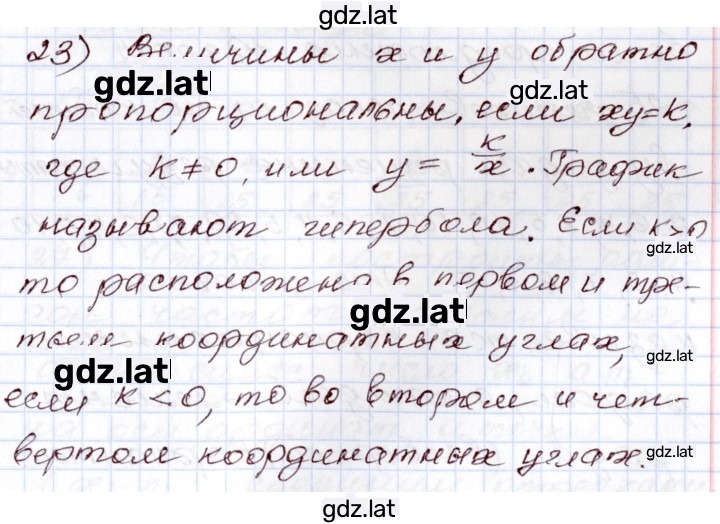 gdz.lat
23) Величины x и y обратно
gdz.lat
gdz.lat
пропорциональны, если xy=k,
где k≠0, или y= k/x. График
называют гипербола. Если k>0
gdz.lat
то расположена в первом и тре-
gdz.lat
тьем координатных углах,
gdz.lat
gdz.lat
если k<0, то во втором и чет-
вертом координатных углах.
gdz.lat
gdz.lat